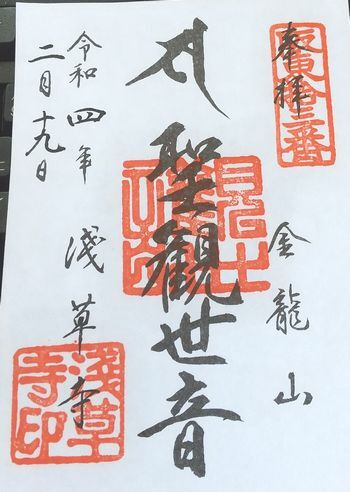 奉拝
坂東拾三番
金龍山
聖観世音
浅草寺
令和四年
二月十九日
浅草寺印